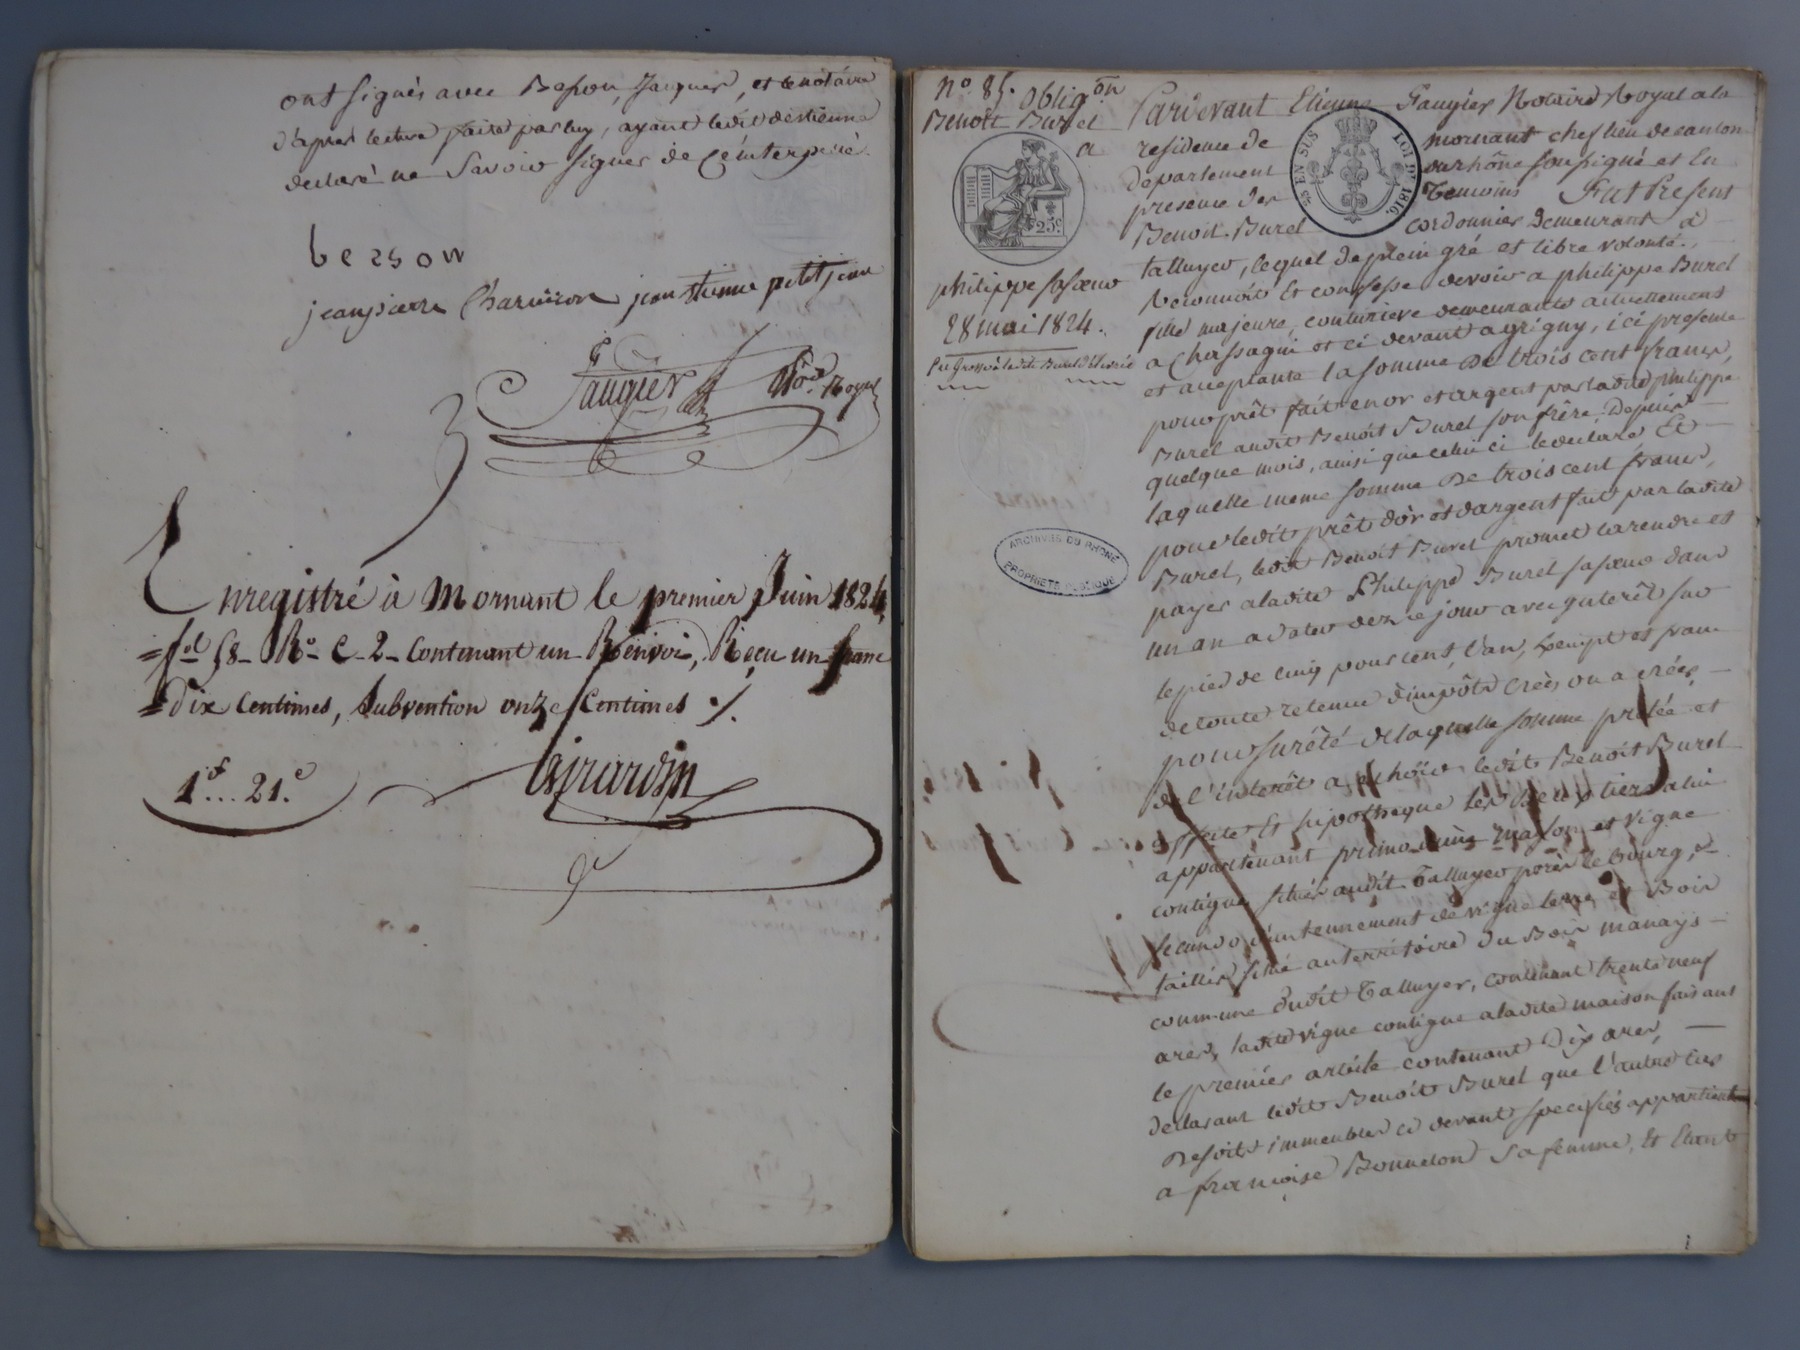 ont signés avec Besson, Jaques, et le notaire
d'après lecture faite par luy, ayant ledit destienne
declaré ne Savoir signer de ce interpené.
besson
jeanpierre Charvieron jean etienne petitjean
Faugier Nore. Royal
Enregistré à Mornant le premier Juin 1824
fol 58 Ro C 2 Contenant un Renvoi, Reçu un franc
dix Centimes, Subvention onze Centimes ./.
1f... 21.c
Girardin
No. 85. Obligon
Benoit Burel
a
25 c
philippe sa sœur
28 mai 1824.
En Grosse à ladite Burel délivrée
ARCHIVES DU RHONE
PROPRIETE PUBLIQUE
25 EN SUS LOI DE 1816.
Pardevant Etienne Faugier Notaire Royal a la
residence de mornant chef lieu de canton
departement du rhône soussigné et En
presence des Temoins Fut Present
Benoit Burel cordonnier demeurant à
talluyer, lequel de plein gré et libre volonté,
Reconnoît Et confesse devoir a philippe Burel
fille majeure, couturiere demeurante actuellement
a Chassagni et ci devant a grigny, ici presente
et acceptante la somme De trois cent francs,
pour prêt fait en or et argent par ladite philippe
Burel audit Benoit Burel son frère, Depuis
quelque mois, ainsi que celui ci le declare Et
laquelle meme somme De trois cent francs,
pour ledit prêt d'or et d'argent fait par ladite
Burel, ledit Benoit Burel promet la rendre et
payer a ladite Philippe Burel sa sœur dans
un an a dater de ce jour avec interêt sur
le pied de cinq pour cent, l'an, exempt et franc
de toute retenue d'impôts créés ou a créer,
pour sureté de laquelle somme prêtée et
de l'interêt a echoir ledit Benoit Burel
affecte Et hipotheque les deux tiers a lui
appartenant primo d'une maison et vigne
contigue situés audit Talluyer près le bourg, &
secundo d'un tennement de vigne terre et Bois
taillis situé au territoire du Bois manays
commune dudit Talluyer, contenant trente neuf
ares, ladite vigne contigue a ladite maison faisant
le premier article contenant Dix ares,
declarant ledit Benoit Burel que l'autre tiers
Desdits immeubles ci devant specifiés appartient
a françoise Bonneton sa femme, Et Etant